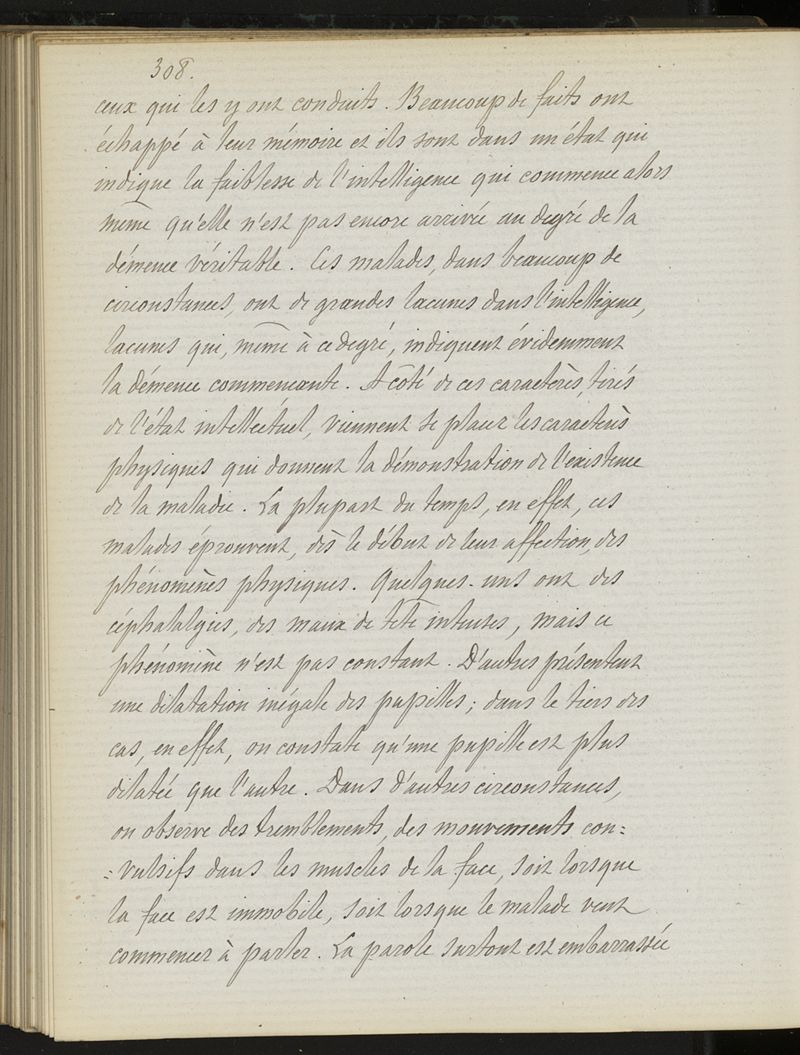 308.
ceux qui les y ont conduits. Beaucoup de faits ont
échappé à leur mémoire et ils sont dans un état qui
indique la faiblesse de l'intelligence qui commence alors
même qu'elle n'est pas encore arrivée au degré de la
démence véritable. Ces malades, dans beaucoup de
circonstances, ont de grandes lacunes dans l'intelligence,
lacunes qui, même à ce degré, indiquent évidemment
la démence commençante. A côté de ces caractères, tirés
de l'état intellectuel, viennent se placer les caractères
physiques qui donnent la démonstration de l'existence
de la maladie. La plupart du temps, en effet, ces
malades éprouvent, dès le début de leur affection, des
phénomènes physiques. Quelques-uns ont des
céphalalgies, des maux de tête intenses, mais ce
phénomène n'est pas constant. D'autres présentent
une dilatation inégale des pupilles; dans le tiers des
cas, en effet, on constate qu'une pupille est plus
dilatée que l'autre. Dans d'autres circonstances,
on observe des tremblements, des mouvements con=
=vulsifs dans les muscles de la face, soit lorsque
la face est immobile, soit lorsque le malade veut
commencer à parler. La parole surtout est embarrassée